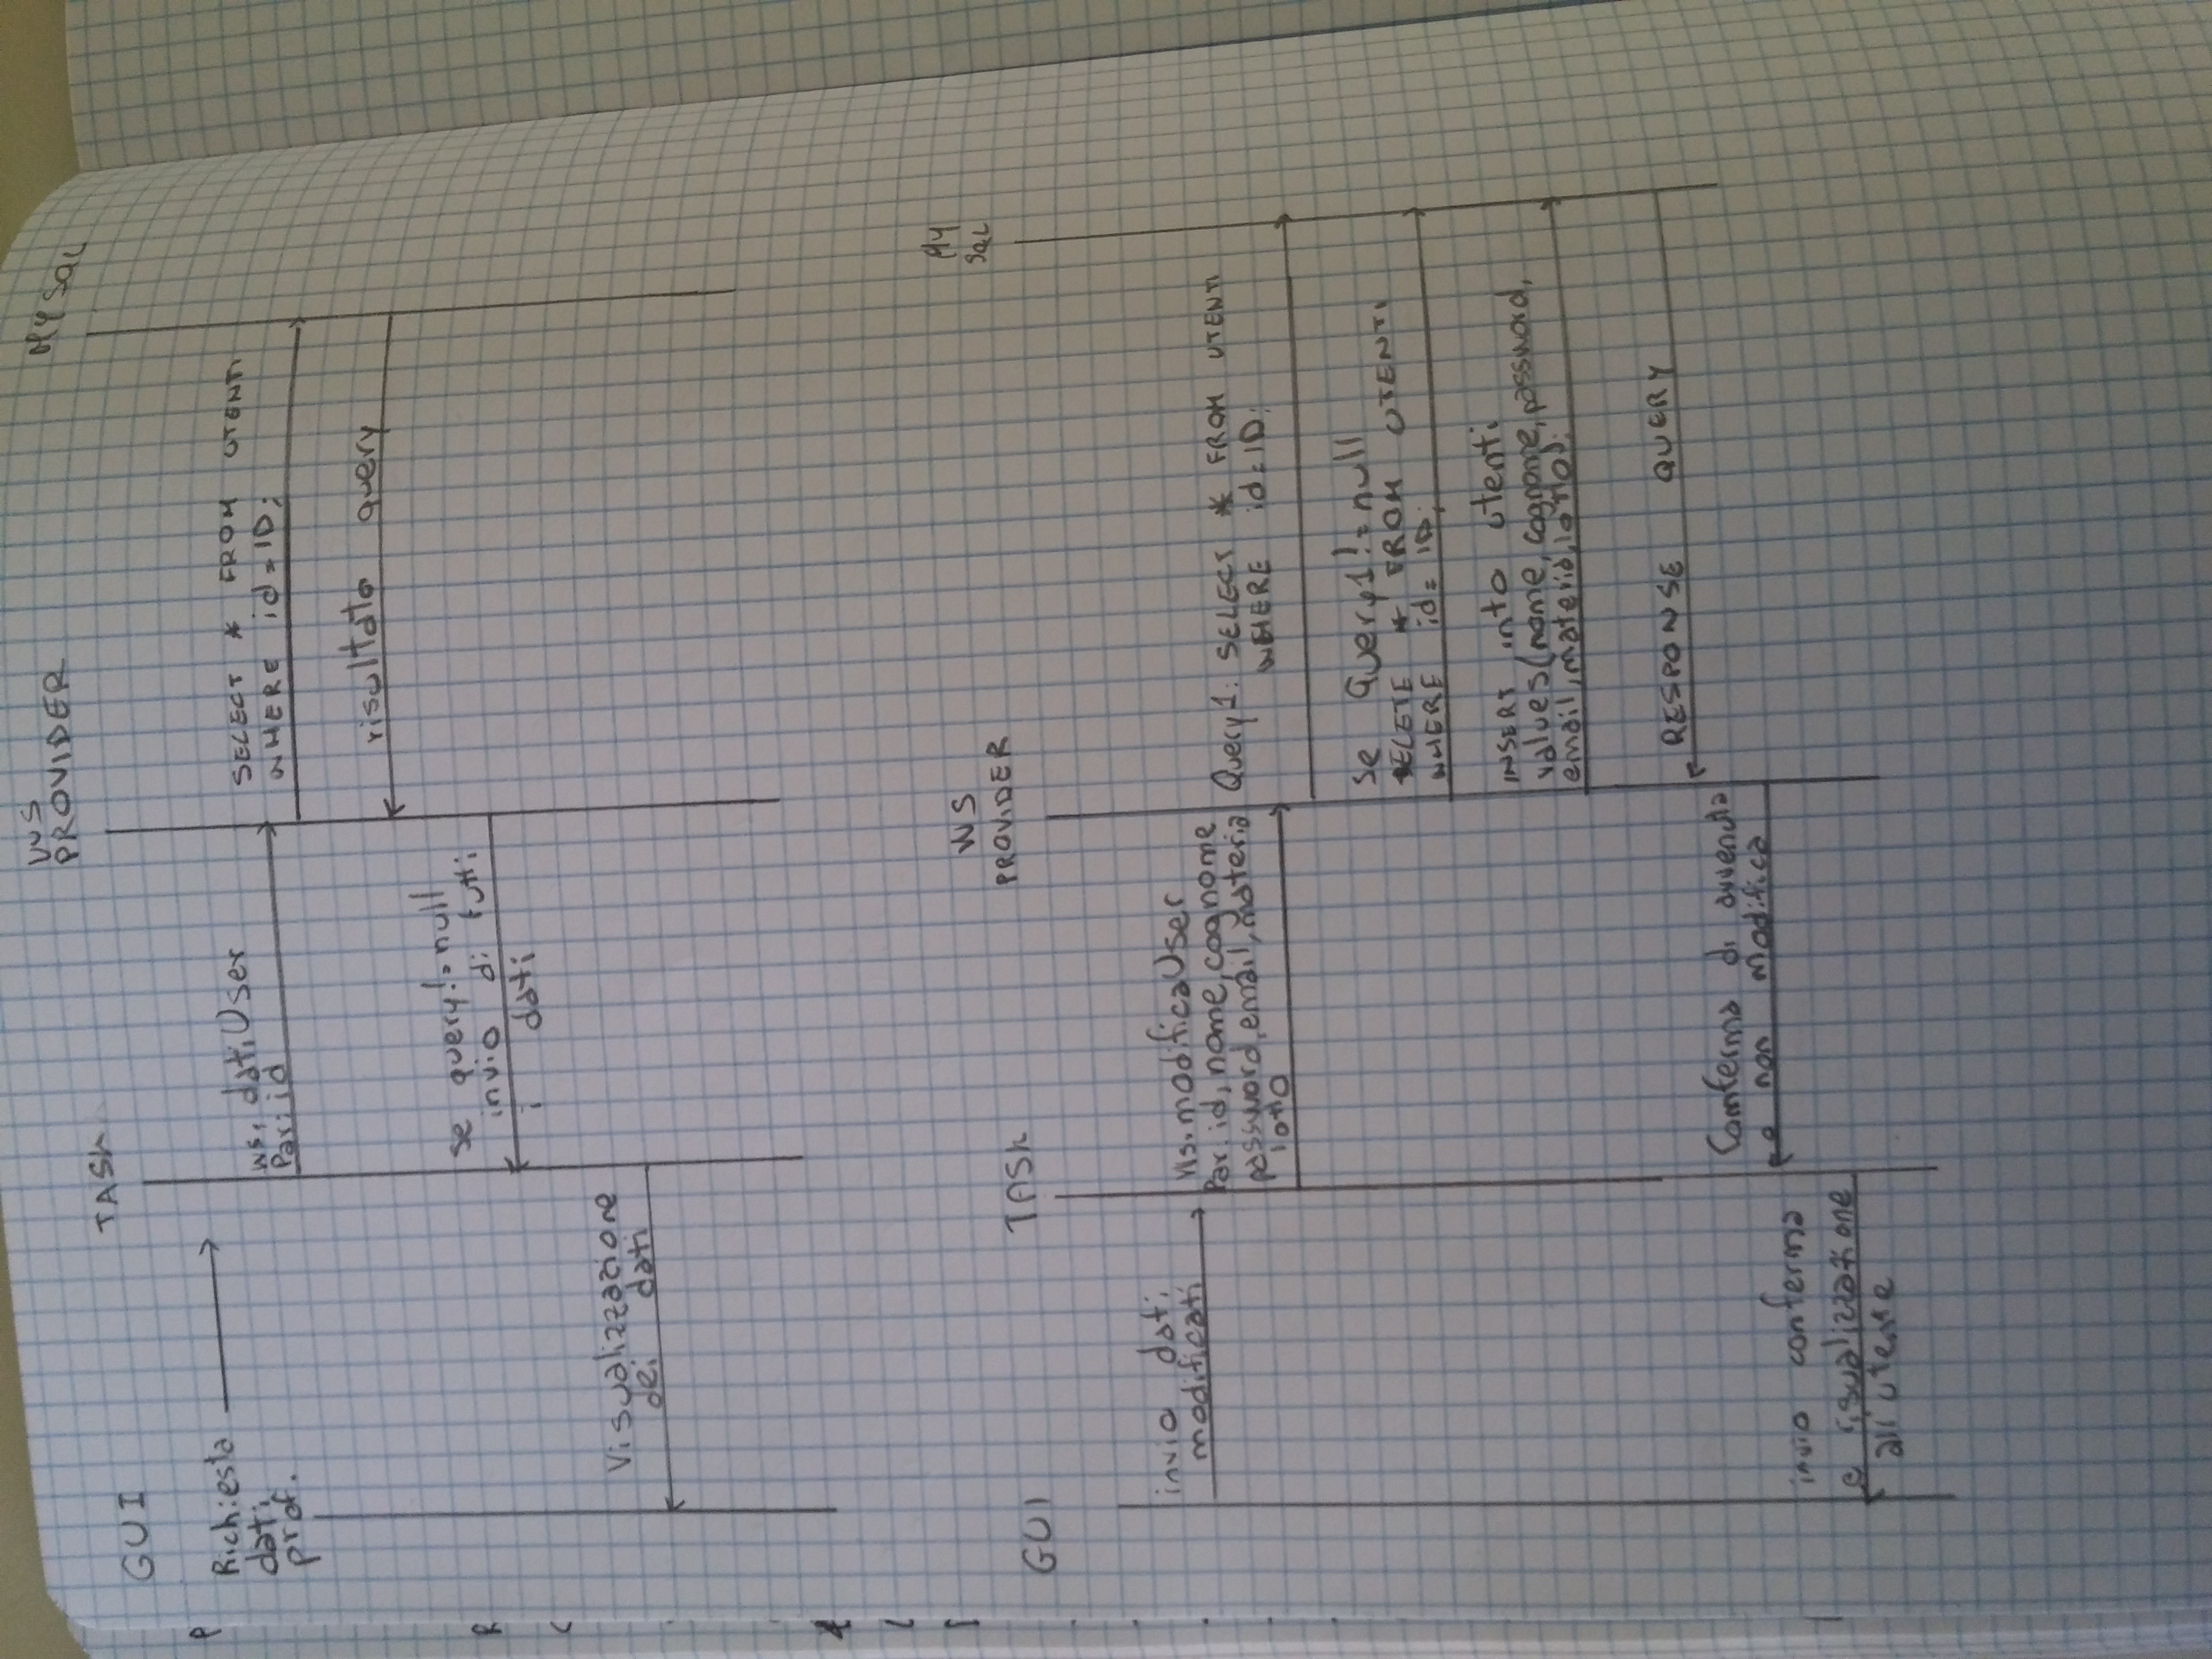 WS
PROVIDER
MYSQL
TASK
GUI
Richiesta
dati
prof.
ws. datiUser
Par: id
SELECT * FROM UTENTI
WHERE id=ID;
risultato query
se query!=null
invio di tutti
i dati
Visualizzazione
dei dati
P
R
C
WS
PROVIDER
My
SQL
TASK
GUI
invio dati
modificati
Ws.modificaUser
Par. id, nome, cognome
password, email, materia
Query1: SELECT * FROM UTENTI
WHERE id=ID;
se Query1!=null
DELETE * FROM UTENTI
WHERE id= ID;
INSERT into utenti
values(nome, cognome, password,
email, materia,
RESPONSE QUERY
Comferma di avvenuta
o non modifica
invio conferma
e visualizzazione
all'utente